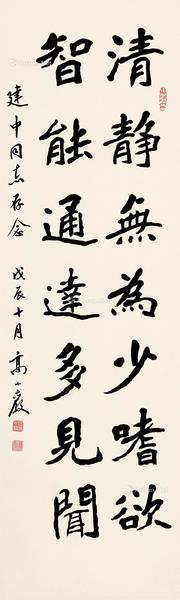 清靜無為少嗜欲
智能通達多見聞
建中同志存念
戊辰十月高小岩